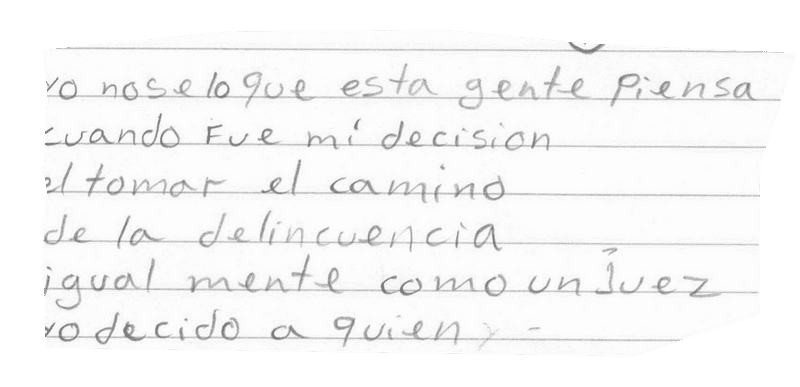 yo nose lo que esta gente piensa
cuando Fue mi decision
el tomar el camino
de la delincuencia
igual mente como un Juez
yo decido a quien